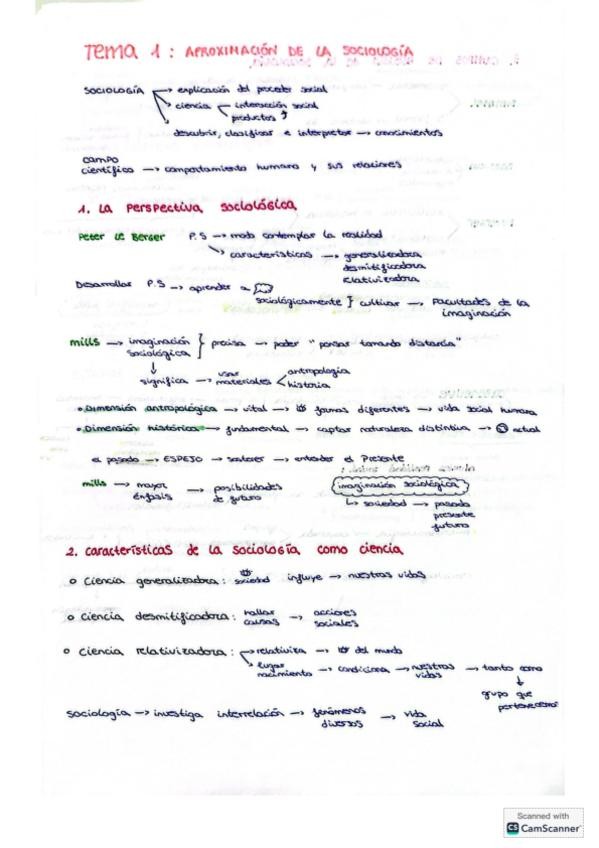 Tema 1: APROXIMACIÓN DE LA SOCIOLOGÍA
SOCIOLOGÍA → explicación del proceder social
→ ciencia — interacción social
productos
→ descubrir, clasificar e interpretar → conocimientos
campo
científico → comportamiento humano y sus relaciones
1. La perspectiva sociológica
Peter Le Berger P.S → modo contemplar la realidad
→ características → generalizadora
desmitificadora
relativizadora
Desarrollar P.S → aprender a
sociológicamente } cultivar → facultades de la
imaginación
mills → imaginación } precisa → poder "pensar tomando distancia"
sociológica
↓
significa → usar materiales < antropología
historia
• Dimensión antropológica → vital → formas diferentes → vida social humana
• Dimensión histórica → fundamental → captar naturaleza distintiva → actual
el pasado → ESPEJO → → entender el presente
mills → mayor énfasis → posibilidades de futuro
imaginación sociológica
↳ sociedad → pasado
presente
futuro
2. características de la sociología como ciencia
o Ciencia generalizadora: sociedad influye → nuestras vidas
o Ciencia desmitificadora: hallar causas → acciones sociales
o Ciencia relativizadora: → relativiza → del mundo
→ lugar nacimiento → condiciona → nuestras vidas → tanto como
↓
grupo que
pertenecemos
Sociología → investiga interrelación → fenómenos diversos → vida social
Scanned with
CS CamScanner